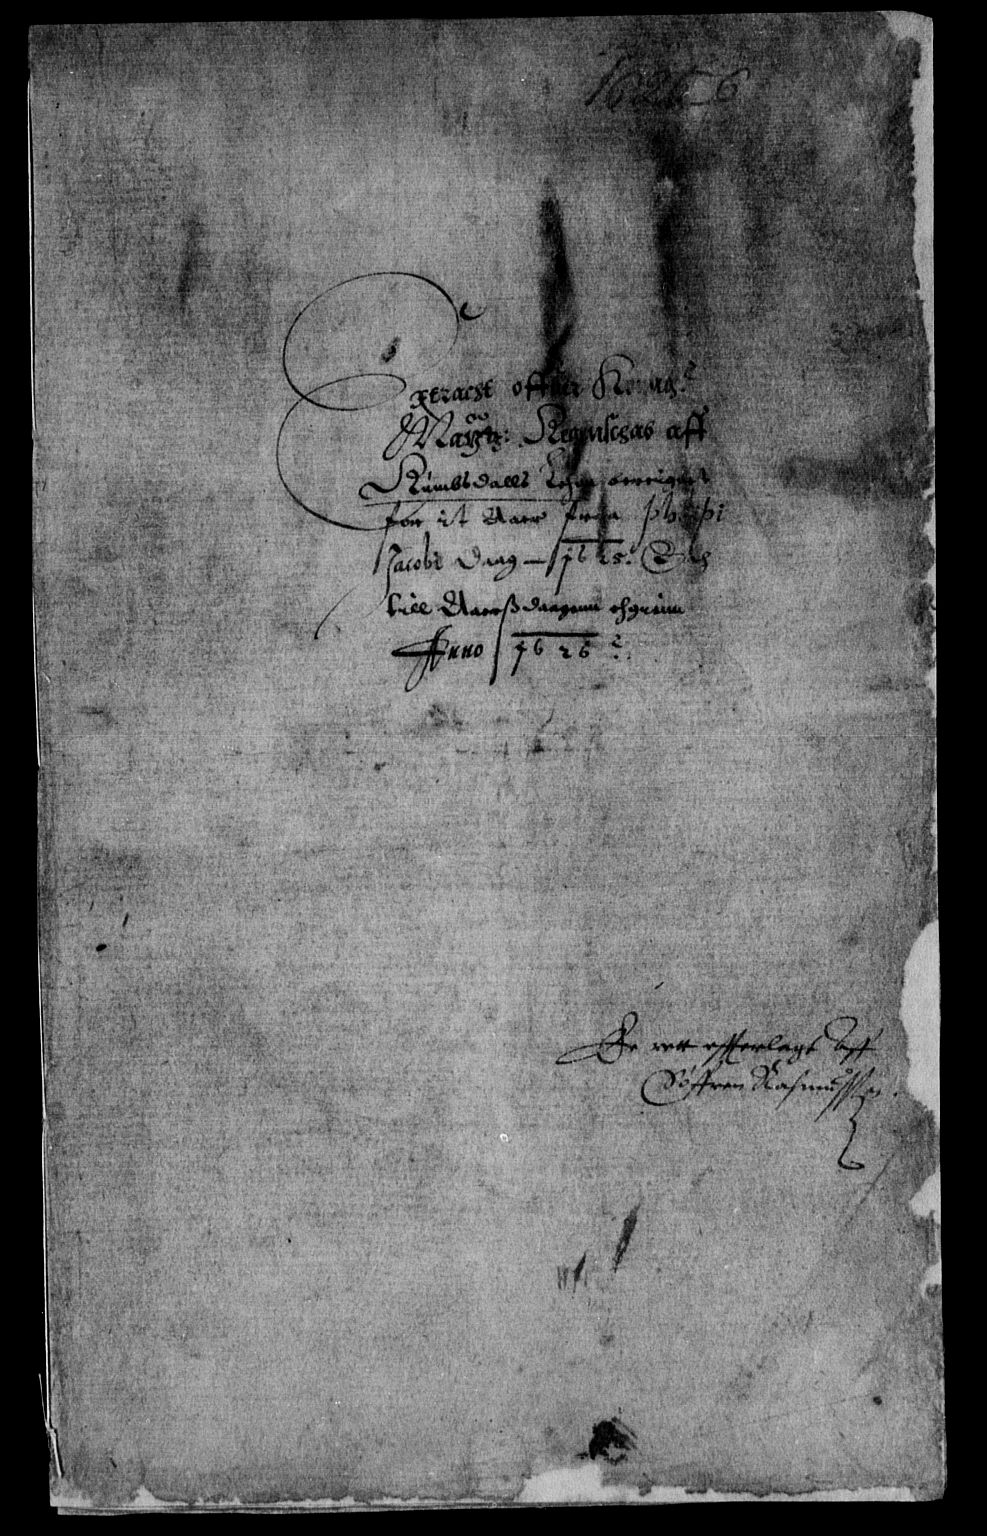 1625 6
Extracht offuer Kong:
Maÿtz: Regenschas aff
Rumbsdalls Lehnn bereignet
for it Aaer fraa Philipi
Jacobi Daag 1625. Och
till Aarsdaagenn ehgienn
Anno 1626.
Er rett efterlagt Aff
Søffren Rasmussen.